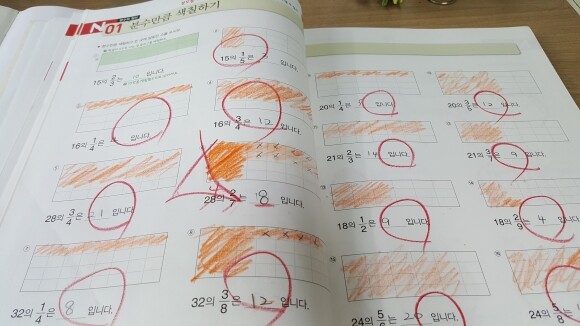 N 01 분수만큼 색칠하기
15의 2/3는 입니다.
15의 1/5은 입니다.
16의 1/4은 입니다.
16의 3/4은 12 입니다.
28의 3/4은 21 입니다.
28의 2/ 는 8 입니다.
32의 1/4은 8 입니다.
32의 3/8은 12 입니다.
20의 1/4은 입니다.
20의 3/5은 12 입니다.
21의 2/3는 14 입니다.
21의 3/7은 9 입니다.
18의 1/2은 9 입니다.
18의 2/9는 4 입니다.
24의 5/6는 20 입니다.
24의 5/8